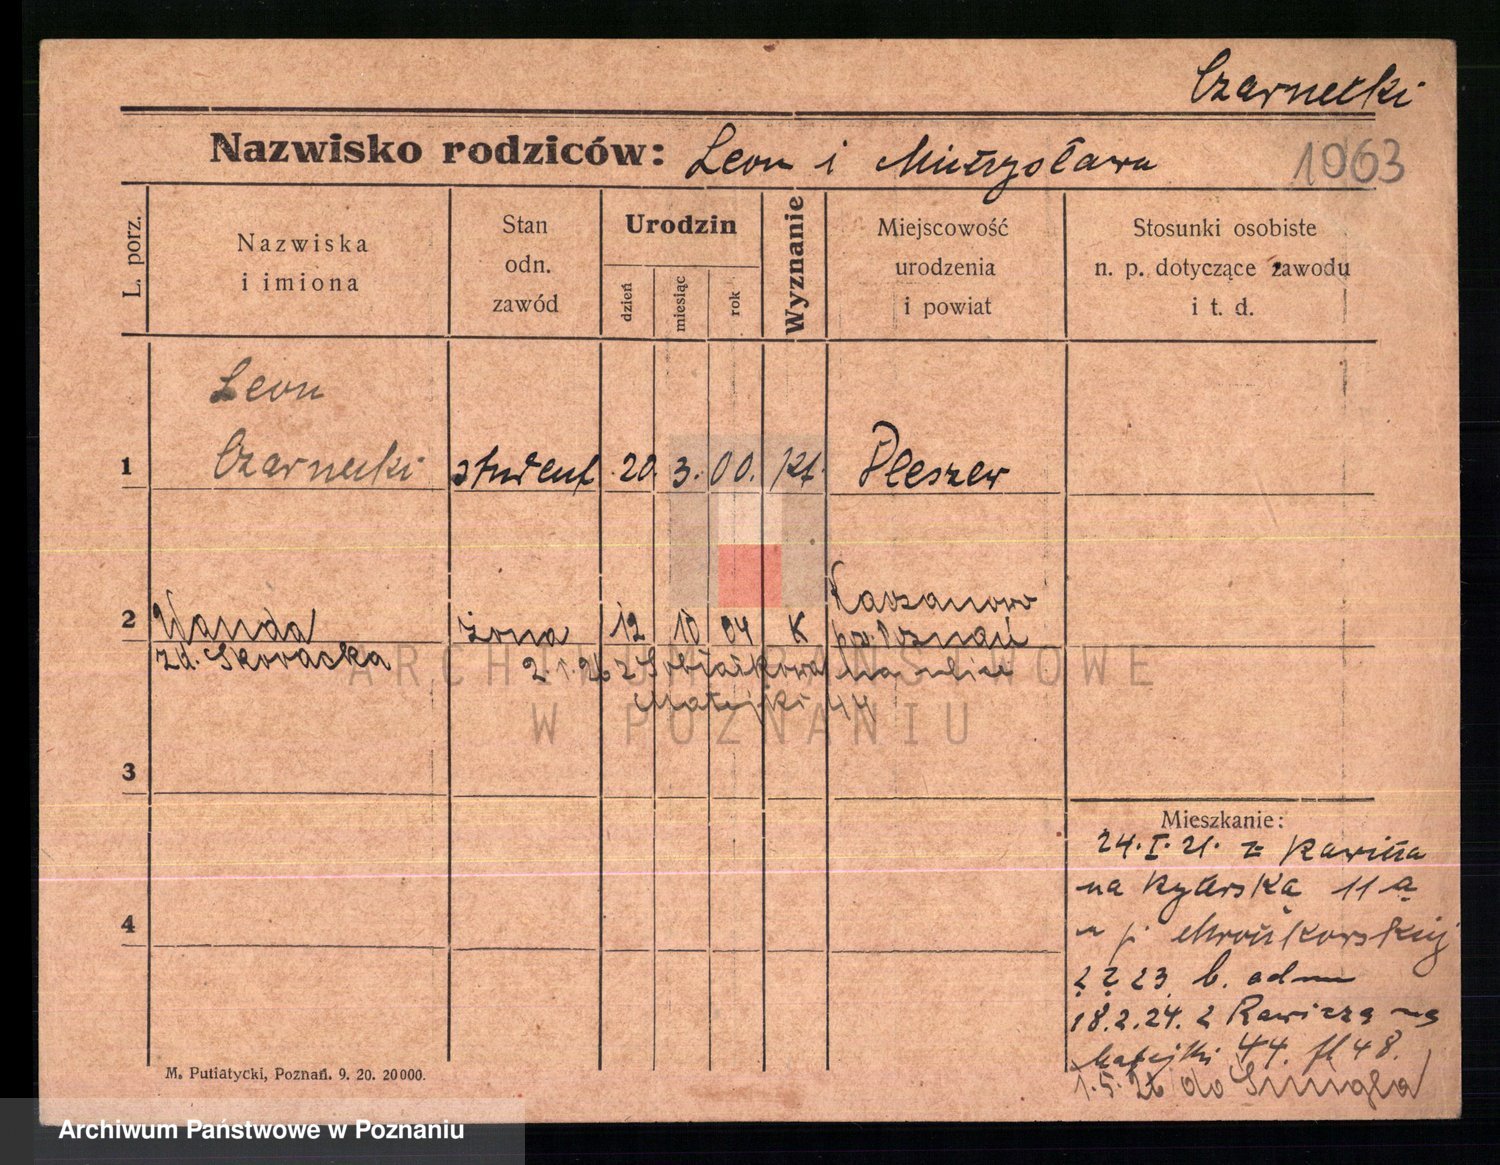 Czarnecki
Nazwisko rodziców: Leon i Mieczysława
1063
L. porz.
Nazwiska i imiona
Stan odn. zawód
Urodzin
dzień
miesiąc
rok
Wyznanie
Miejscowość urodzenia i powiat
Stosunki osobiste n. p. dotyczące zawodu i t. d.
Leon
1 Czarnecki student 20. 3. 00. kt. Pleszew
2 Wanda żona 12 10 04 K
pow. Poznań
zd. Skoracka 2.1.26 z
na ulice
Matejki 44
3
4
Mieszkanie:
24.I.21. z Rawicza
na 11a
u p.
2 2 23. b. adm
18.2.24. z Rawicza na
Matejki 44. 48.
1.5.26 do Śmigla
M. Putiatycki, Poznań. 9. 20. 20000.
ARCHIWUM PAŃSTWOWE
W POZNANIU
Archiwum Państwowe w Poznaniu